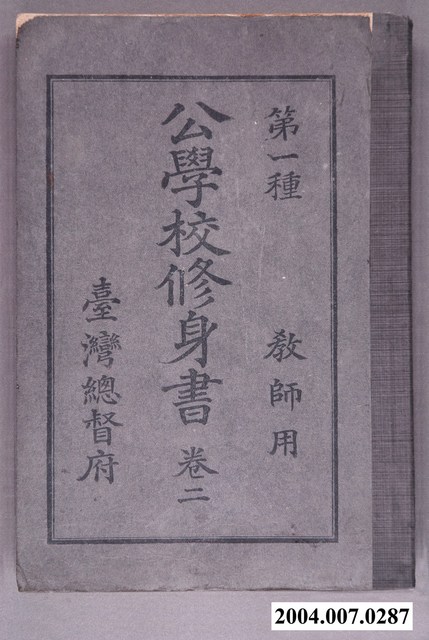 第一種 教師用
公學校修身書 卷二
臺灣總督府
2004.007.0287